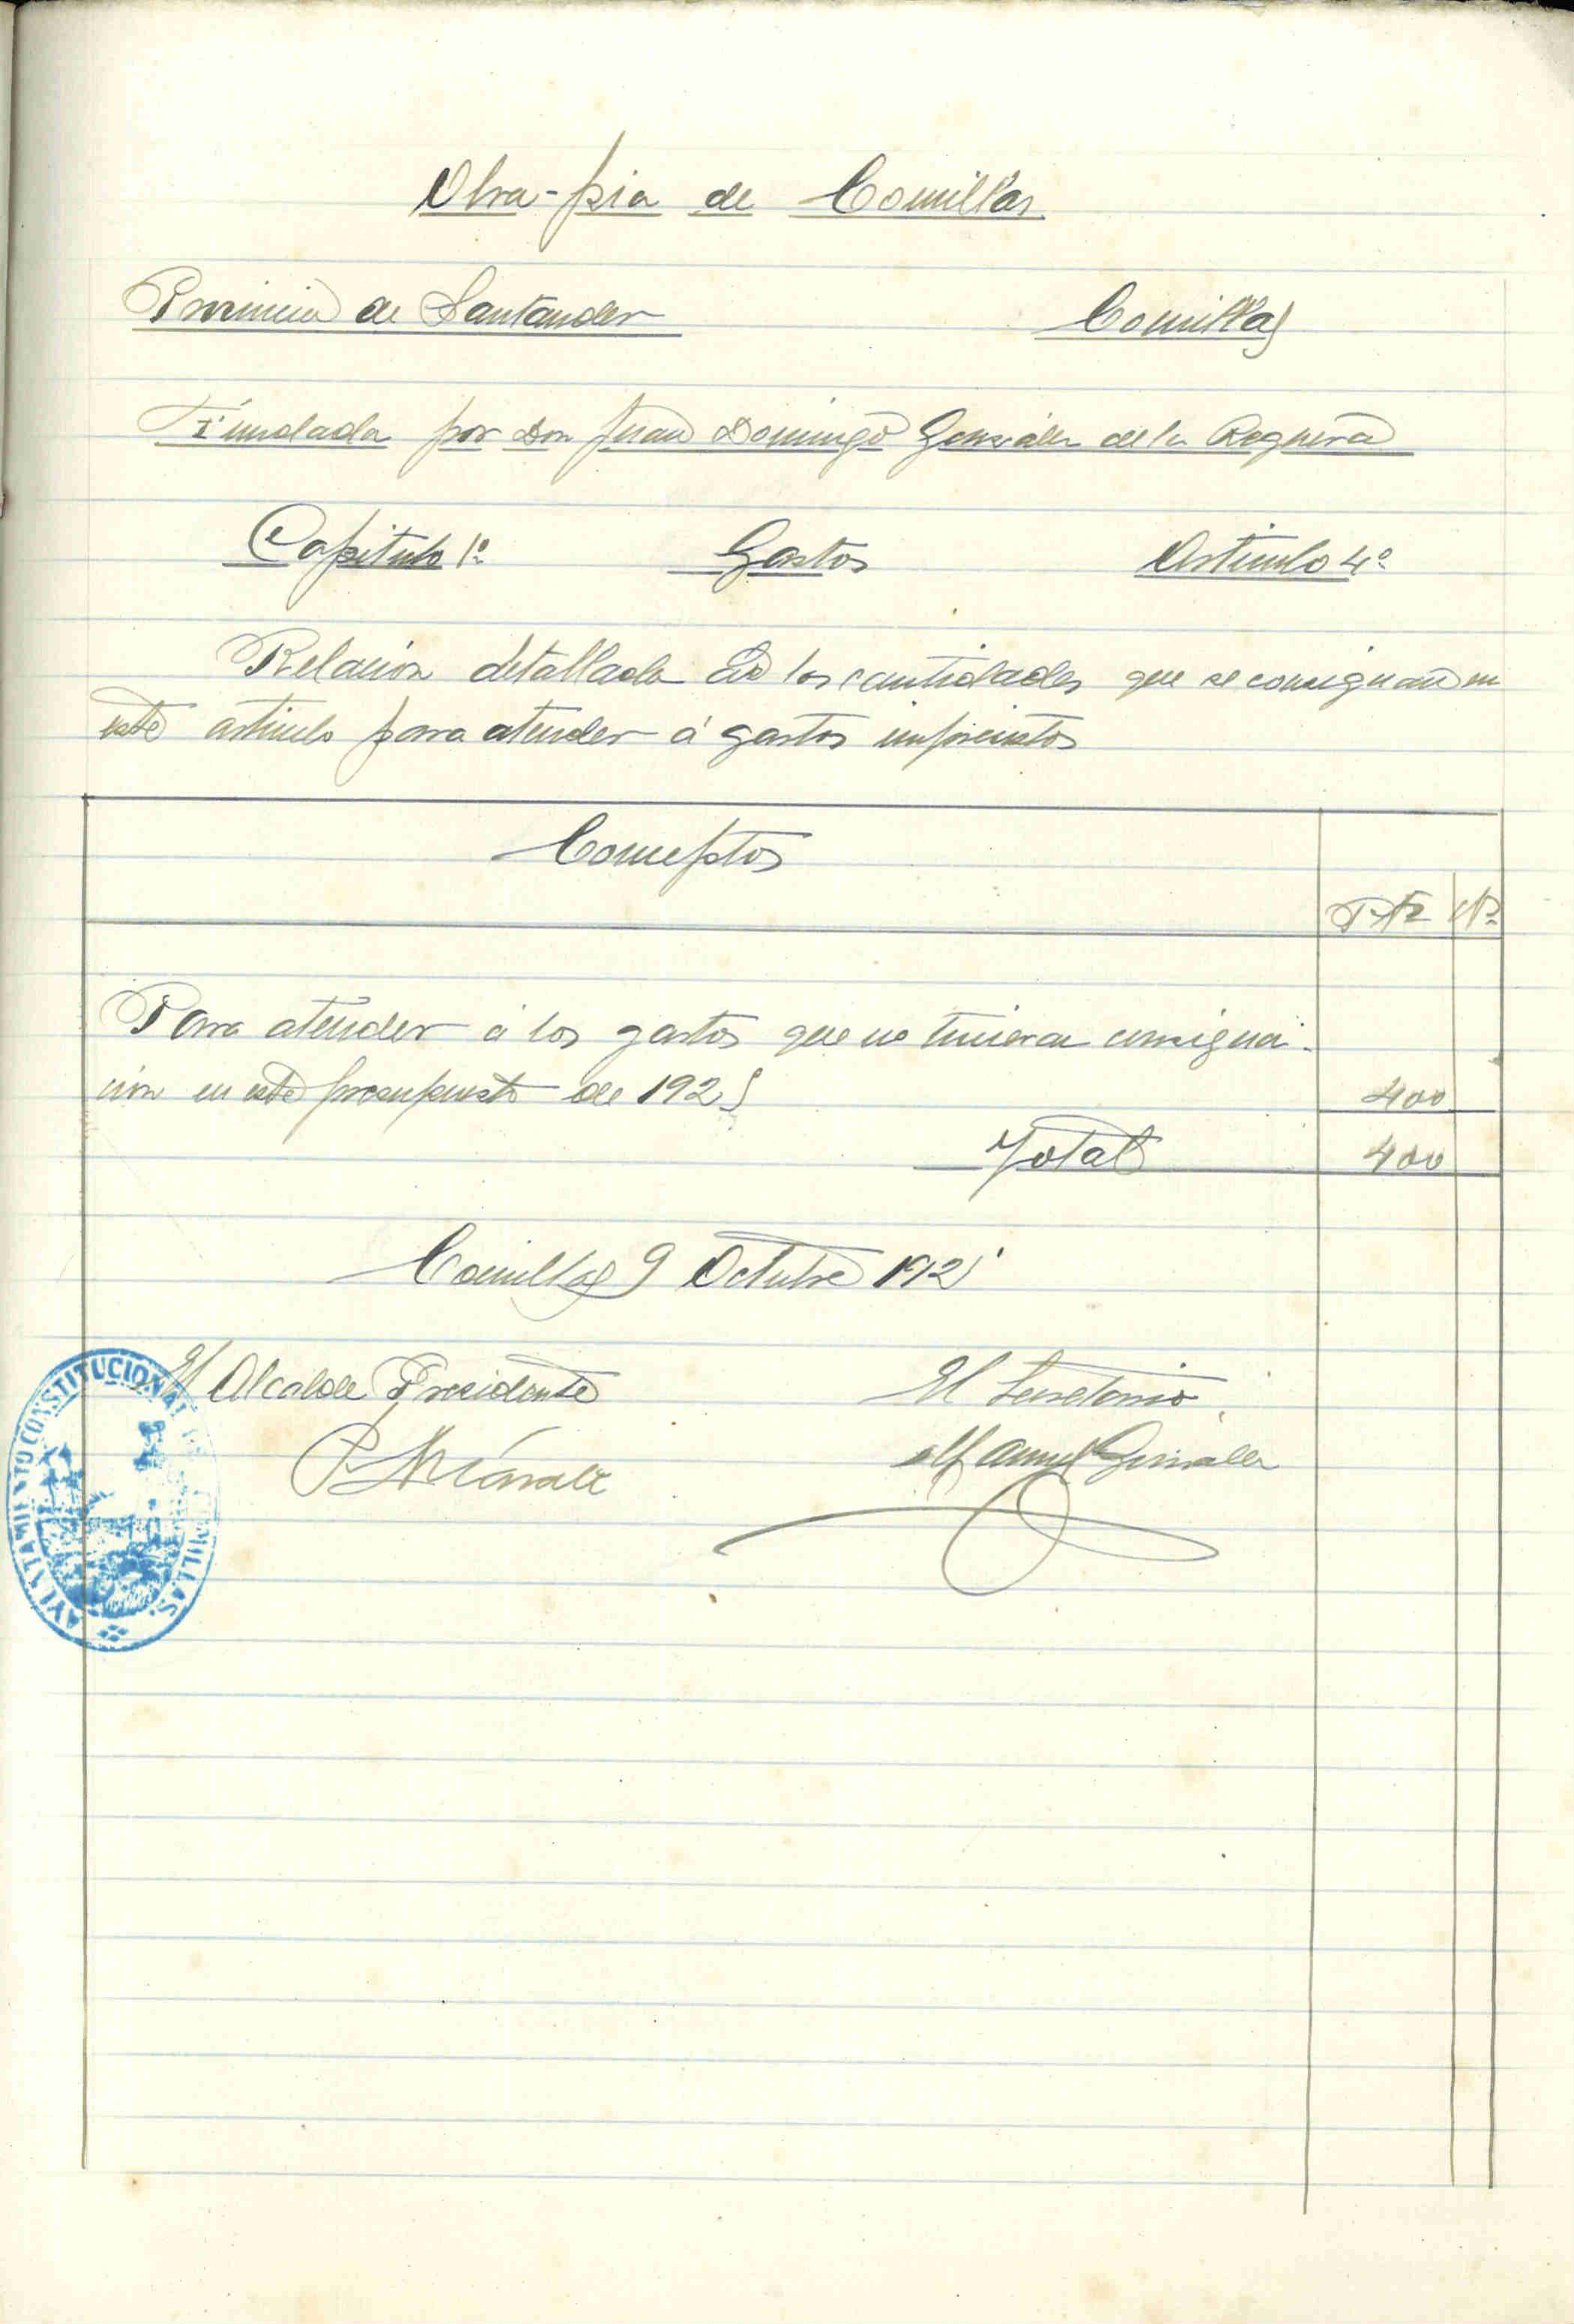 Obra-pia de Comillas
Provincia de Santander Comillas
Fundada por Don Juan Domingo González de la Reguera
Capitulo 1º Gastos Articulo 4º
Relación detallada de las cantidades que se consignan en
este articulo para atender á gastos imprevistos
Conceptos
Pts
Para atender á los gastos que no tuvieran consigna-
ción en este presupuesto de 1925 400
Total 400
Comillas 9 Octubre 192
El Alcalde Presidente El Secretario
P. Manuel González
AYUNTAMIENTO CONSTITUCIONAL DE COMILLAS.